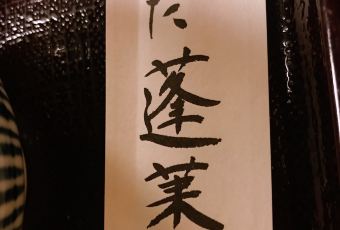 た蓬莱